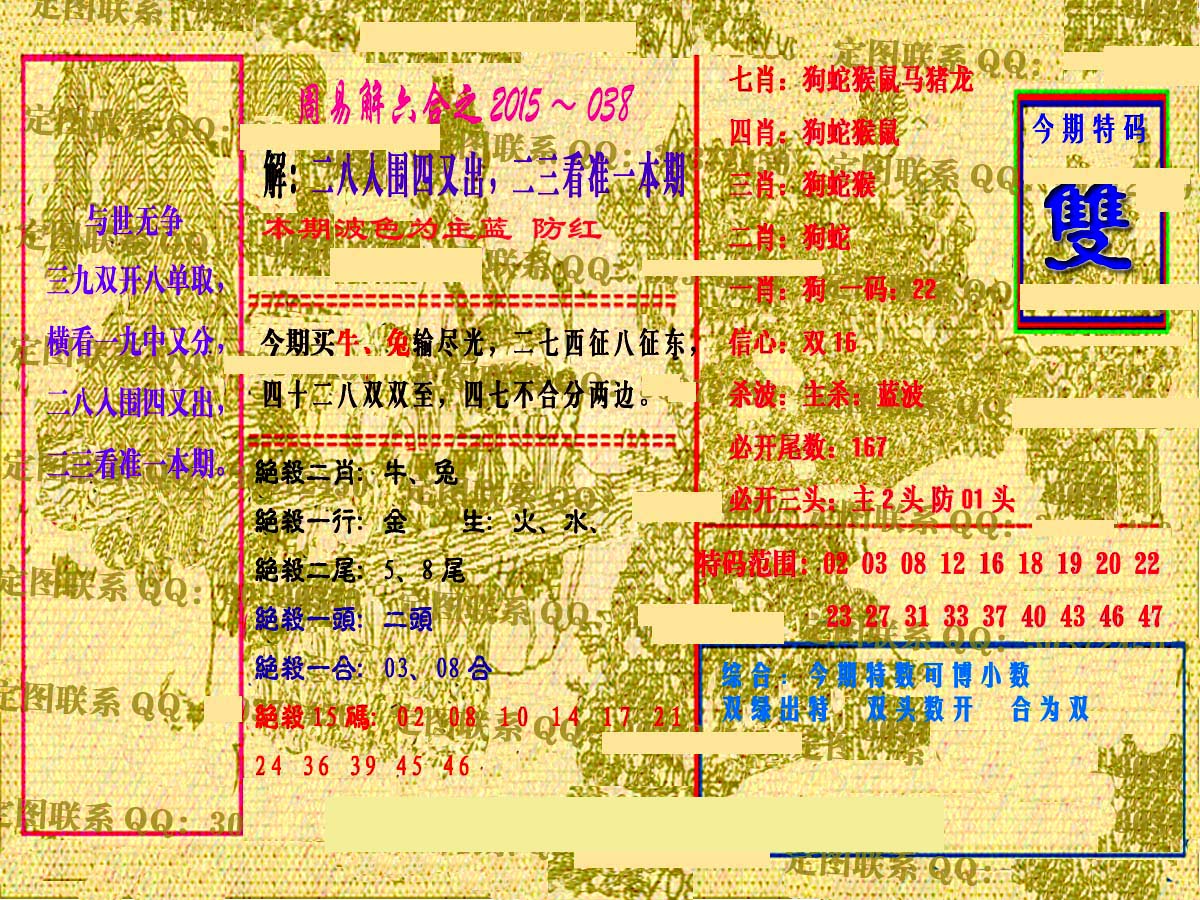 周易解六合之2015～038
解：二八人围四又出，二三看准一本期
本期波色为主蓝 防红
与世无争
三九双开八单取，
横看一九中又分，
二八人围四又出，
二三看准一本期。
今期买牛、兔输尽光，二七西征八征东，
四十二八双双至，四七不合分两边。
絕殺二肖：牛、兔
絕殺一行：金 生：火、水、
絕殺二尾：5、8尾
絕殺一頭：二頭
絕殺一合：03、08合
絕殺15碼：02 08 10 14 17 21
24 36 39 45 46
七肖：狗蛇猴鼠马猪龙
四肖：狗蛇猴鼠
三肖：狗蛇猴
二肖：狗蛇
一肖：狗 一码：22
信心：双16
杀波：主杀：蓝波
必开尾数：167
必开三头：主2头防01头
今期特码
雙
特码范围：02 03 08 12 16 18 19 20 22
23 27 31 33 37 40 43 46 47
综合：今期特数可博小数
双绿出特 双头数开 合为双
定图联系 QQ：